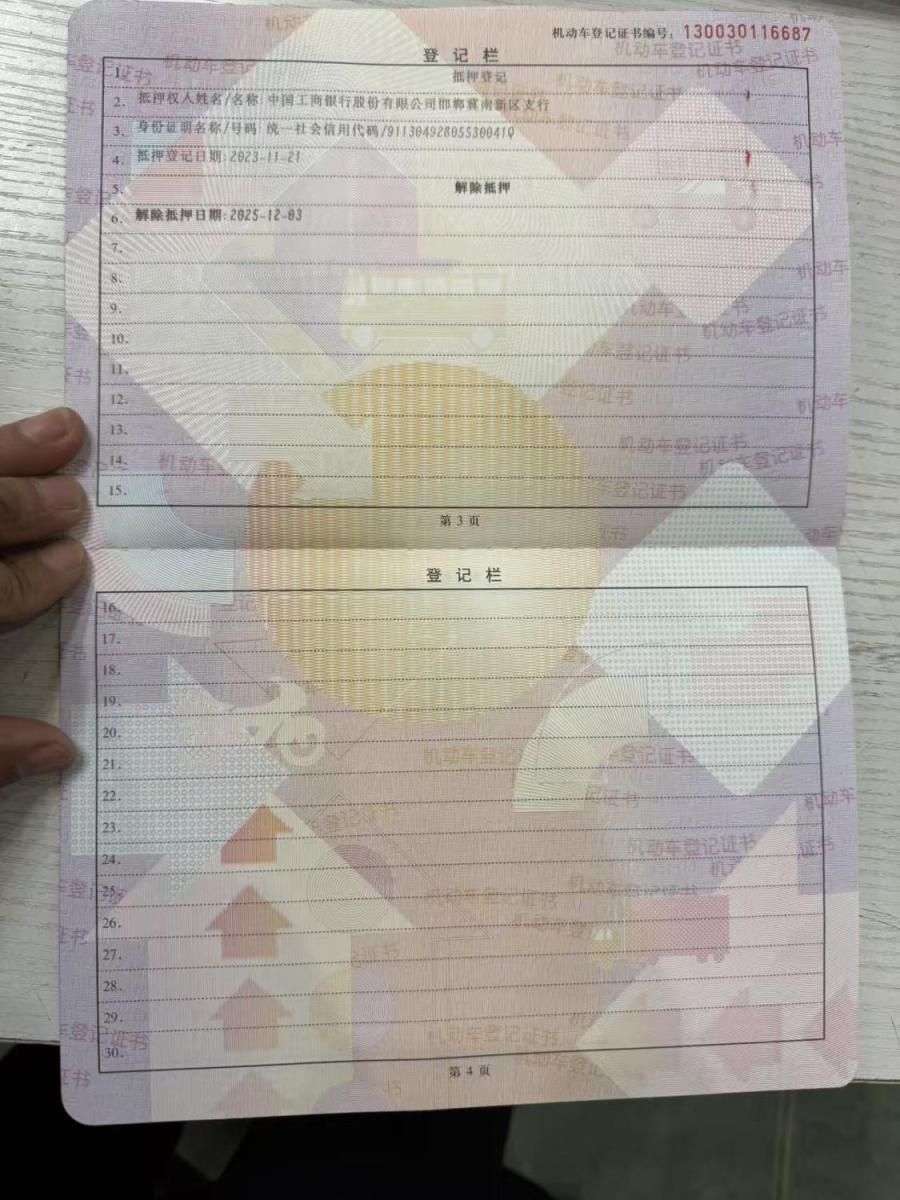 机动车登记证书编号：130030116687
登 记 栏
1. 抵押登记
2. 抵押权人姓名/名称:中国工商银行股份有限公司邯郸冀南新区支行
3. 身份证明名称/号码:统一社会信用代码/91130492805530041Q
4. 抵押登记日期:2023-11-21
5. 解除抵押
6. 解除抵押日期:2025-12-03
7.
8.
9.
10.
11.
12.
13.
14.
15.
第 3 页
登 记 栏
16.
17.
18.
19.
20.
21.
22.
23.
24.
25.
26.
27.
28.
29.
30.
第 4 页